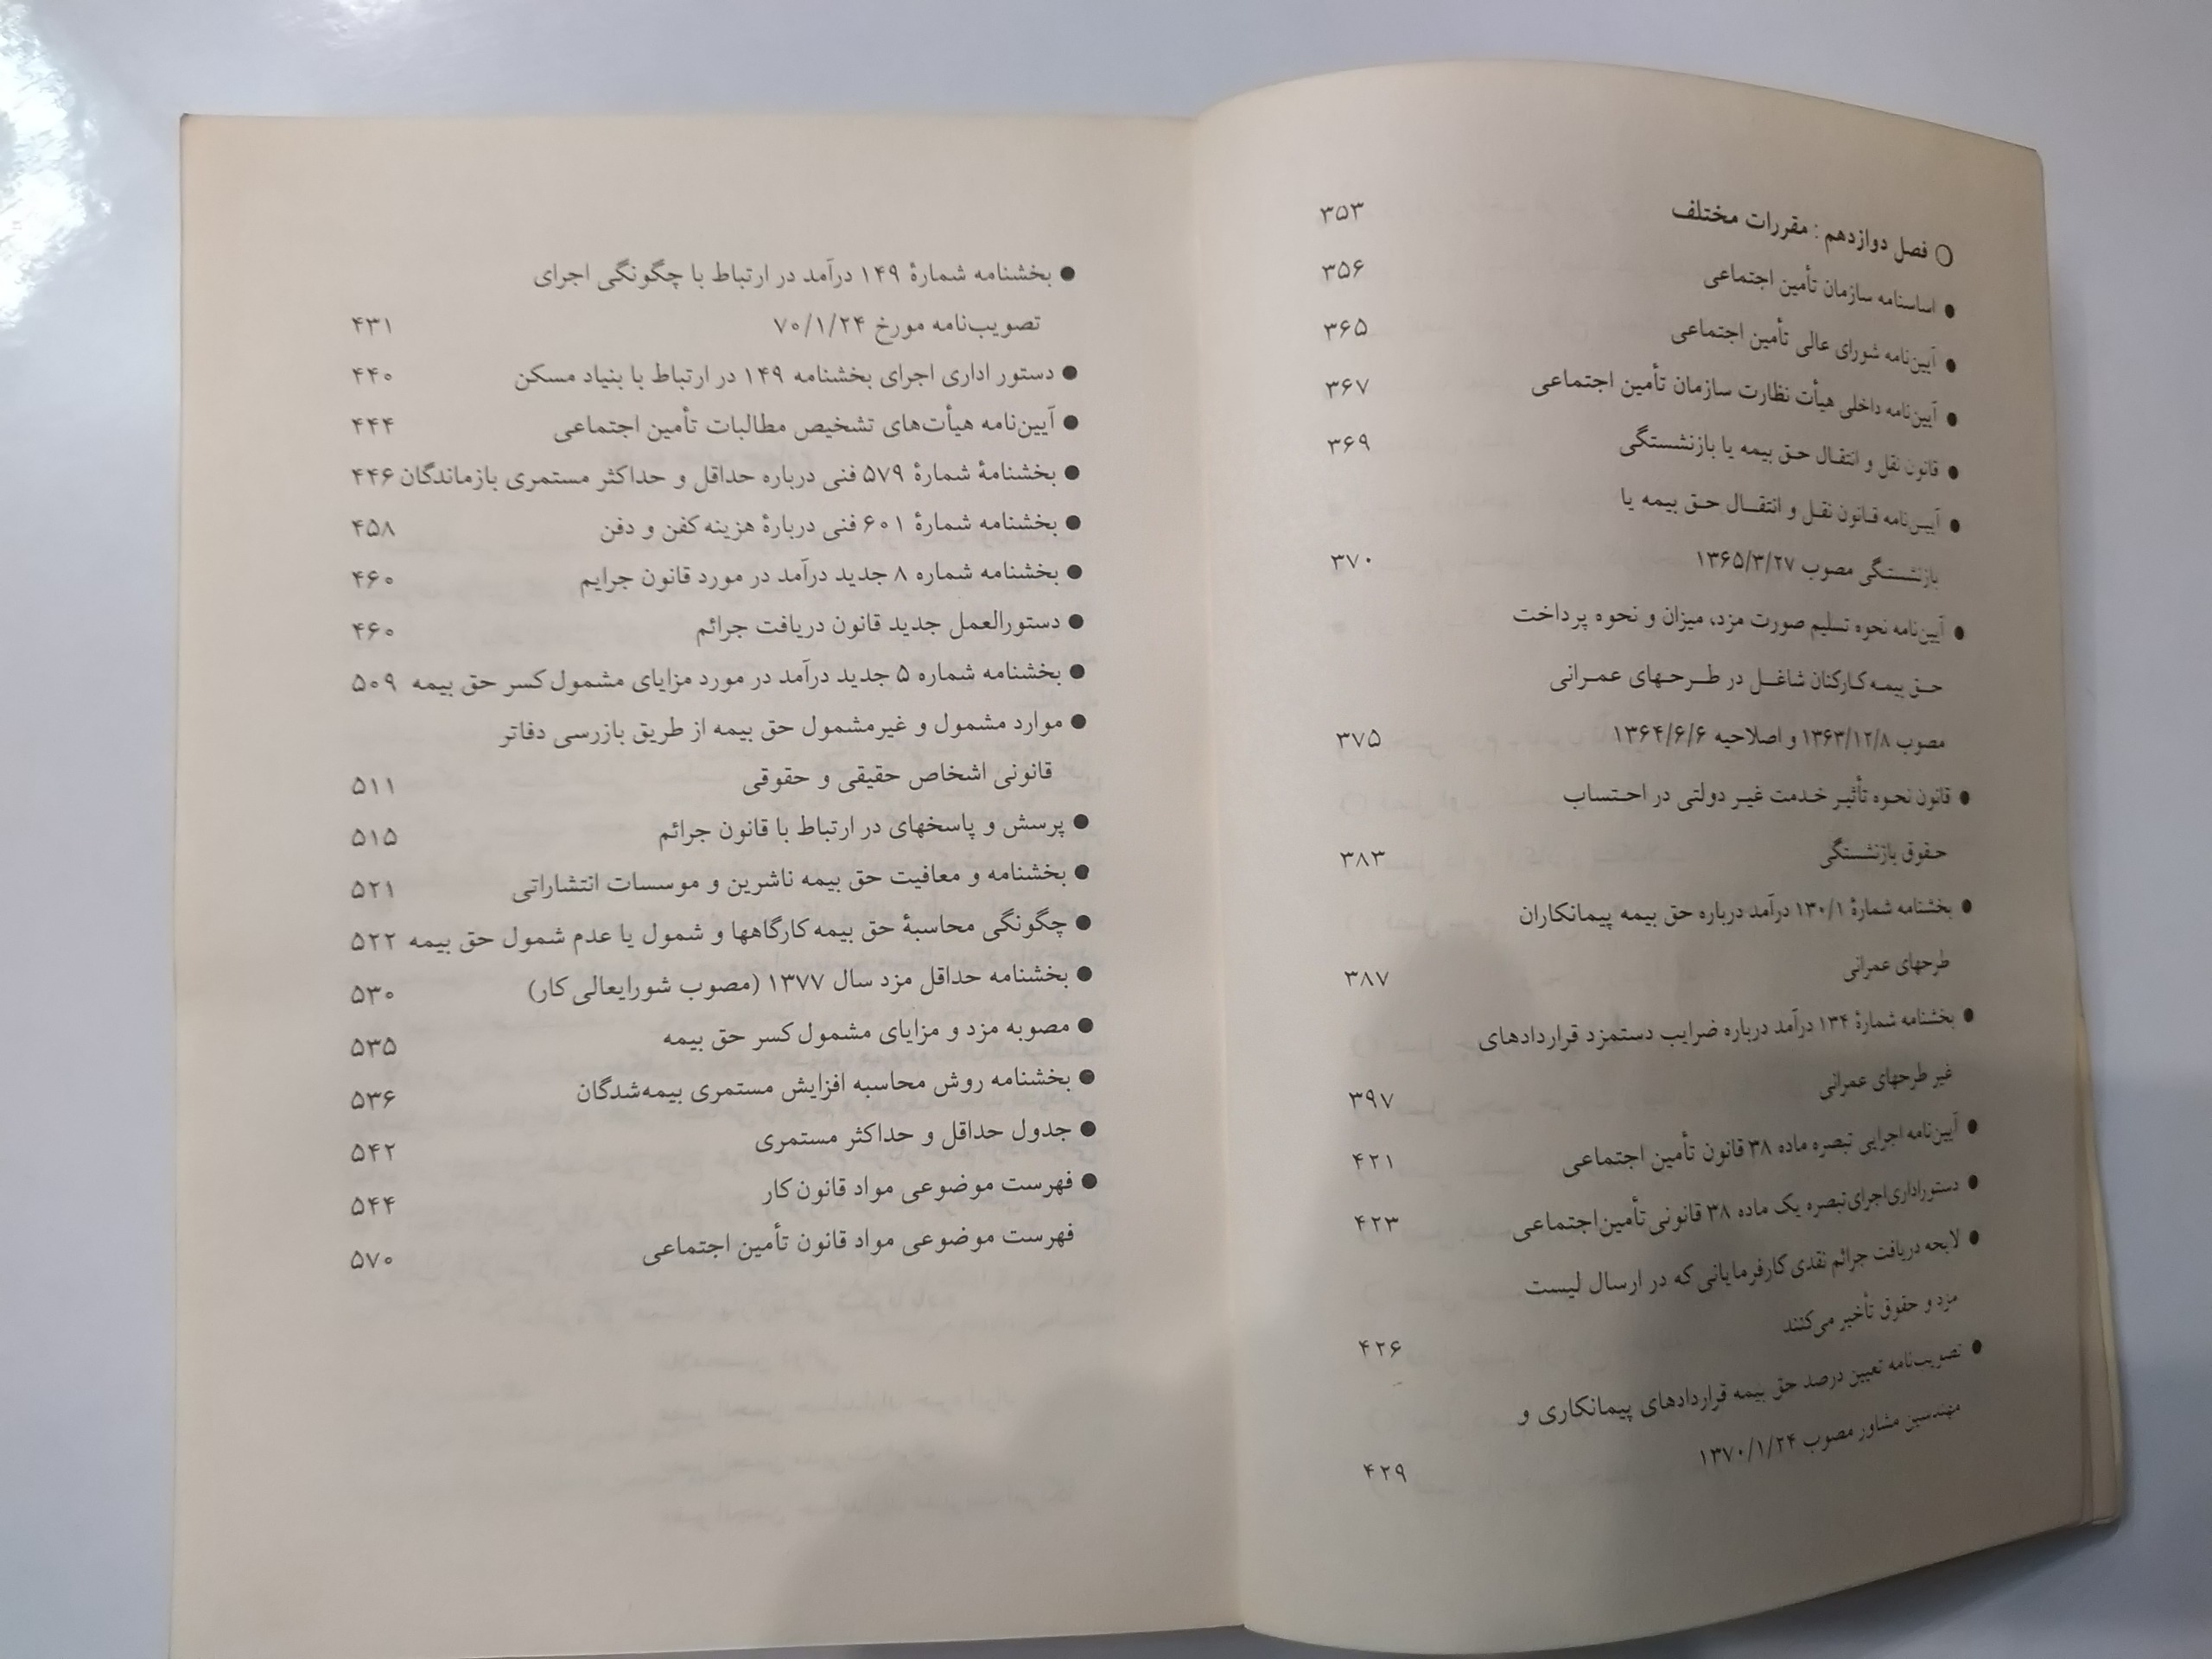 ○ فصل دوازدهم : مقررات مختلف ۳۵۳
● اساسنامه سازمان تأمین اجتماعی ۳۵۶
● آیین‌نامه شورای عالی تأمین اجتماعی ۳۶۵
● آیین‌نامه داخلی هیأت نظارت سازمان تأمین اجتماعی ۳۶۷
● قانون نقل و انتقال حق بیمه یا بازنشستگی ۳۶۹
● آیین‌نامه قانون نقل و انتقال حق بیمه یا
بازنشستگی مصوب ۱۳۶۵/۳/۲۷ ۳۷۰
● آیین‌نامه نحوه تسلیم صورت مزد، میزان و نحوه پرداخت
حق بیمه کارکنان شاغل در طرحهای عمرانی
مصوب ۱۳۶۳/۱۲/۸ و اصلاحیه ۱۳۶۴/۶/۶ ۳۷۵
● قانون نحوه تأثیر خدمت غیر دولتی در احتساب
حقوق بازنشستگی ۳۸۳
● بخشنامه شمارهٔ ۱۳۰/۱ درآمد درباره حق بیمه پیمانکاران
طرحهای عمرانی ۳۸۷
● بخشنامه شمارهٔ ۱۳۴ درآمد درباره ضرایب دستمزد قراردادهای
غیر طرحهای عمرانی ۳۹۷
● آیین‌نامه اجرایی تبصره ماده ۳۸ قانون تأمین اجتماعی ۴۲۱
● دستور اداری اجرای تبصره یک ماده ۳۸ قانونی تأمین اجتماعی ۴۲۳
● لایحه دریافت جرائم نقدی کارفرمایانی که در ارسال لیست
مزد و حقوق تأخیر می‌کنند ۴۲۶
● تصویب‌نامه تعیین درصد حق بیمه قراردادهای پیمانکاری و
مهندسین مشاور مصوب ۱۳۷۰/۱/۲۴ ۴۲۹
● بخشنامه شمارهٔ ۱۴۹ درآمد در ارتباط با چگونگی اجرای
تصویب‌نامه مورخ ۷۰/۱/۲۴ ۴۳۱
● دستور اداری اجرای بخشنامه ۱۴۹ در ارتباط با بنیاد مسکن ۴۴۰
● آیین‌نامه هیأت‌های تشخیص مطالبات تأمین اجتماعی ۴۴۴
● بخشنامهٔ شمارهٔ ۵۷۹ فنی درباره حداقل و حداکثر مستمری بازماندگان ۴۴۶
● بخشنامه شمارهٔ ۶۰۱ فنی دربارهٔ هزینه کفن و دفن ۴۵۸
● بخشنامه شماره ۸ جدید درآمد در مورد قانون جرایم ۴۶۰
● دستورالعمل جدید قانون دریافت جرائم ۴۶۰
● بخشنامه شماره ۵ جدید درآمد در مورد مزایای مشمول کسر حق بیمه ۵۰۹
● موارد مشمول و غیرمشمول حق بیمه از طریق بازرسی دفاتر
قانونی اشخاص حقیقی و حقوقی ۵۱۱
● پرسش و پاسخهای در ارتباط با قانون جرائم ۵۱۵
● بخشنامه و معافیت حق بیمه ناشرین و موسسات انتشاراتی ۵۲۱
● چگونگی محاسبهٔ حق بیمه کارگاهها و شمول یا عدم شمول حق بیمه ۵۲۲
● بخشنامه حداقل مزد سال ۱۳۷۷ (مصوب شورایعالی کار) ۵۳۰
● مصوبه مزد و مزایای مشمول کسر حق بیمه ۵۳۵
● بخشنامه روش محاسبه افزایش مستمری بیمه‌شدگان ۵۳۶
● جدول حداقل و حداکثر مستمری ۵۴۲
● فهرست موضوعی مواد قانون کار ۵۴۴
فهرست موضوعی مواد قانون تأمین اجتماعی ۵۷۰